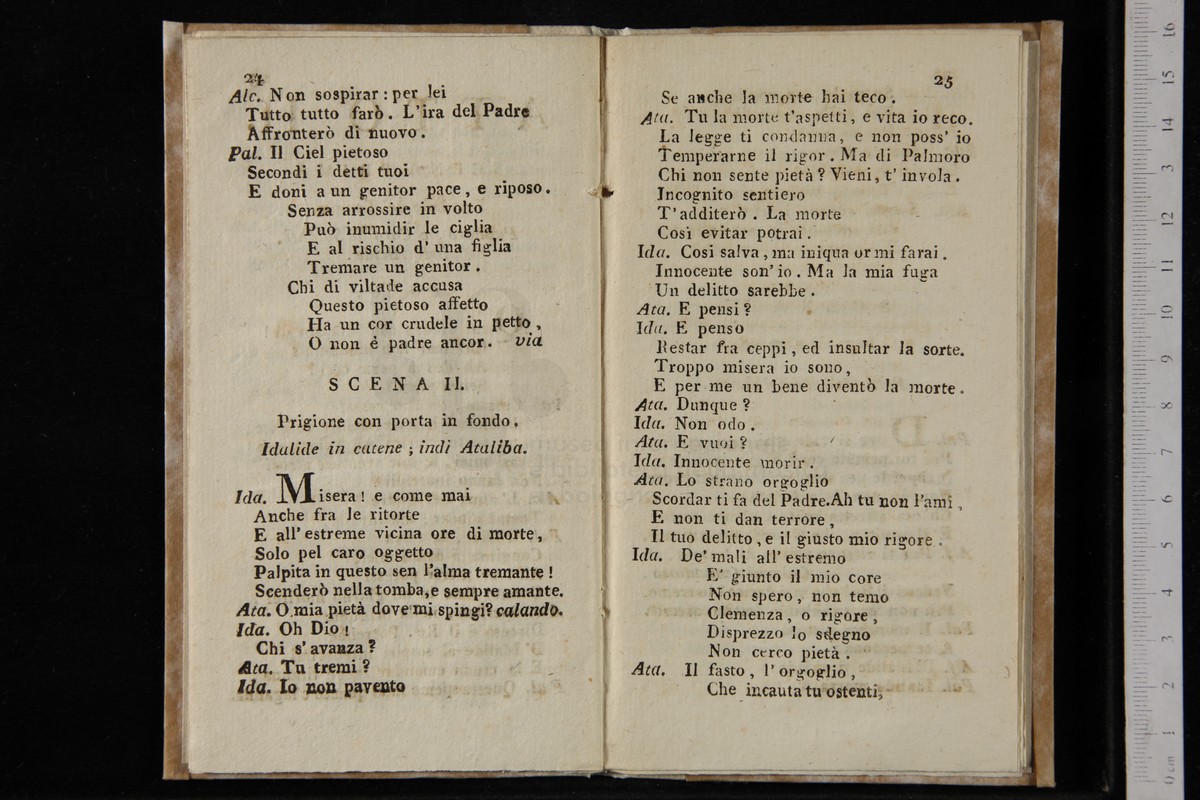 24
Alc. Non sospirar: per lei
Tutto tutto farò. L'ira del Padre
Affronterò di nuovo.
Pal. Il Ciel pietoso
Secondi i detti tuoi
E doni a un genitor pace, e riposo.
Senza arrossire in volto
Può inumidir le ciglia
E al rischio d' una figlia
Tremare un genitor.
Chi di viltade accusa
Questo pietoso affetto
Ha un cor crudele in petto,
O non é padre ancor. via
SCENA II.
Prigione con porta in fondo.
Idalide in catene; indi Ataliba.
Ida. Misera! e come mai
Anche fra le ritorte
E all' estreme vicina ore di morte,
Solo pel caro oggetto
Palpita in questo sen l'alma tremante!
Scenderò nella tomba, e sempre amante.
Ata. O mia pietà dove mi spingi? calando.
Ida. Oh Dio!
Chi s' avanza?
Ata. Tu tremi?
Ida. Io non pavento
25
Se anche la morte hai teco.
Ata. Tu la morte t'aspetti, e vita io reco.
La legge ti condanna, e non poss' io
Temperarne il rigor. Ma di Palmoro
Chi non sente pietà? Vieni, t' invola.
Incognito sentiero
T' additerò. La morte
Così evitar potrai.
Ida. Così salva, ma iniqua or mi farai.
Innocente son' io. Ma la mia fuga
Un delitto sarebbe.
Ata. E pensi?
Ida. E penso
Restar fra ceppi, ed insultar la sorte.
Troppo misera io sono,
E per me un bene diventò la morte.
Ata. Dunque?
Ida. Non odo.
Ata. E vuoi?
Ida. Innocente morir.
Ata. Lo strano orgoglio
Scordar ti fa del Padre. Ah tu non l'ami,
E non ti dan terrore,
Il tuo delitto, e il giusto mio rigore.
Ida. De' mali all' estremo
E' giunto il mio core
Non spero, non temo
Clemenza, o rigore,
Disprezzo lo sdegno
Non cerco pietà.
Ata. Il fasto, l' orgoglio,
Che incauta tu ostenti,
0 cm 1 2 3 4 5 6 7 8 9 10 11 12 13 14 15 16